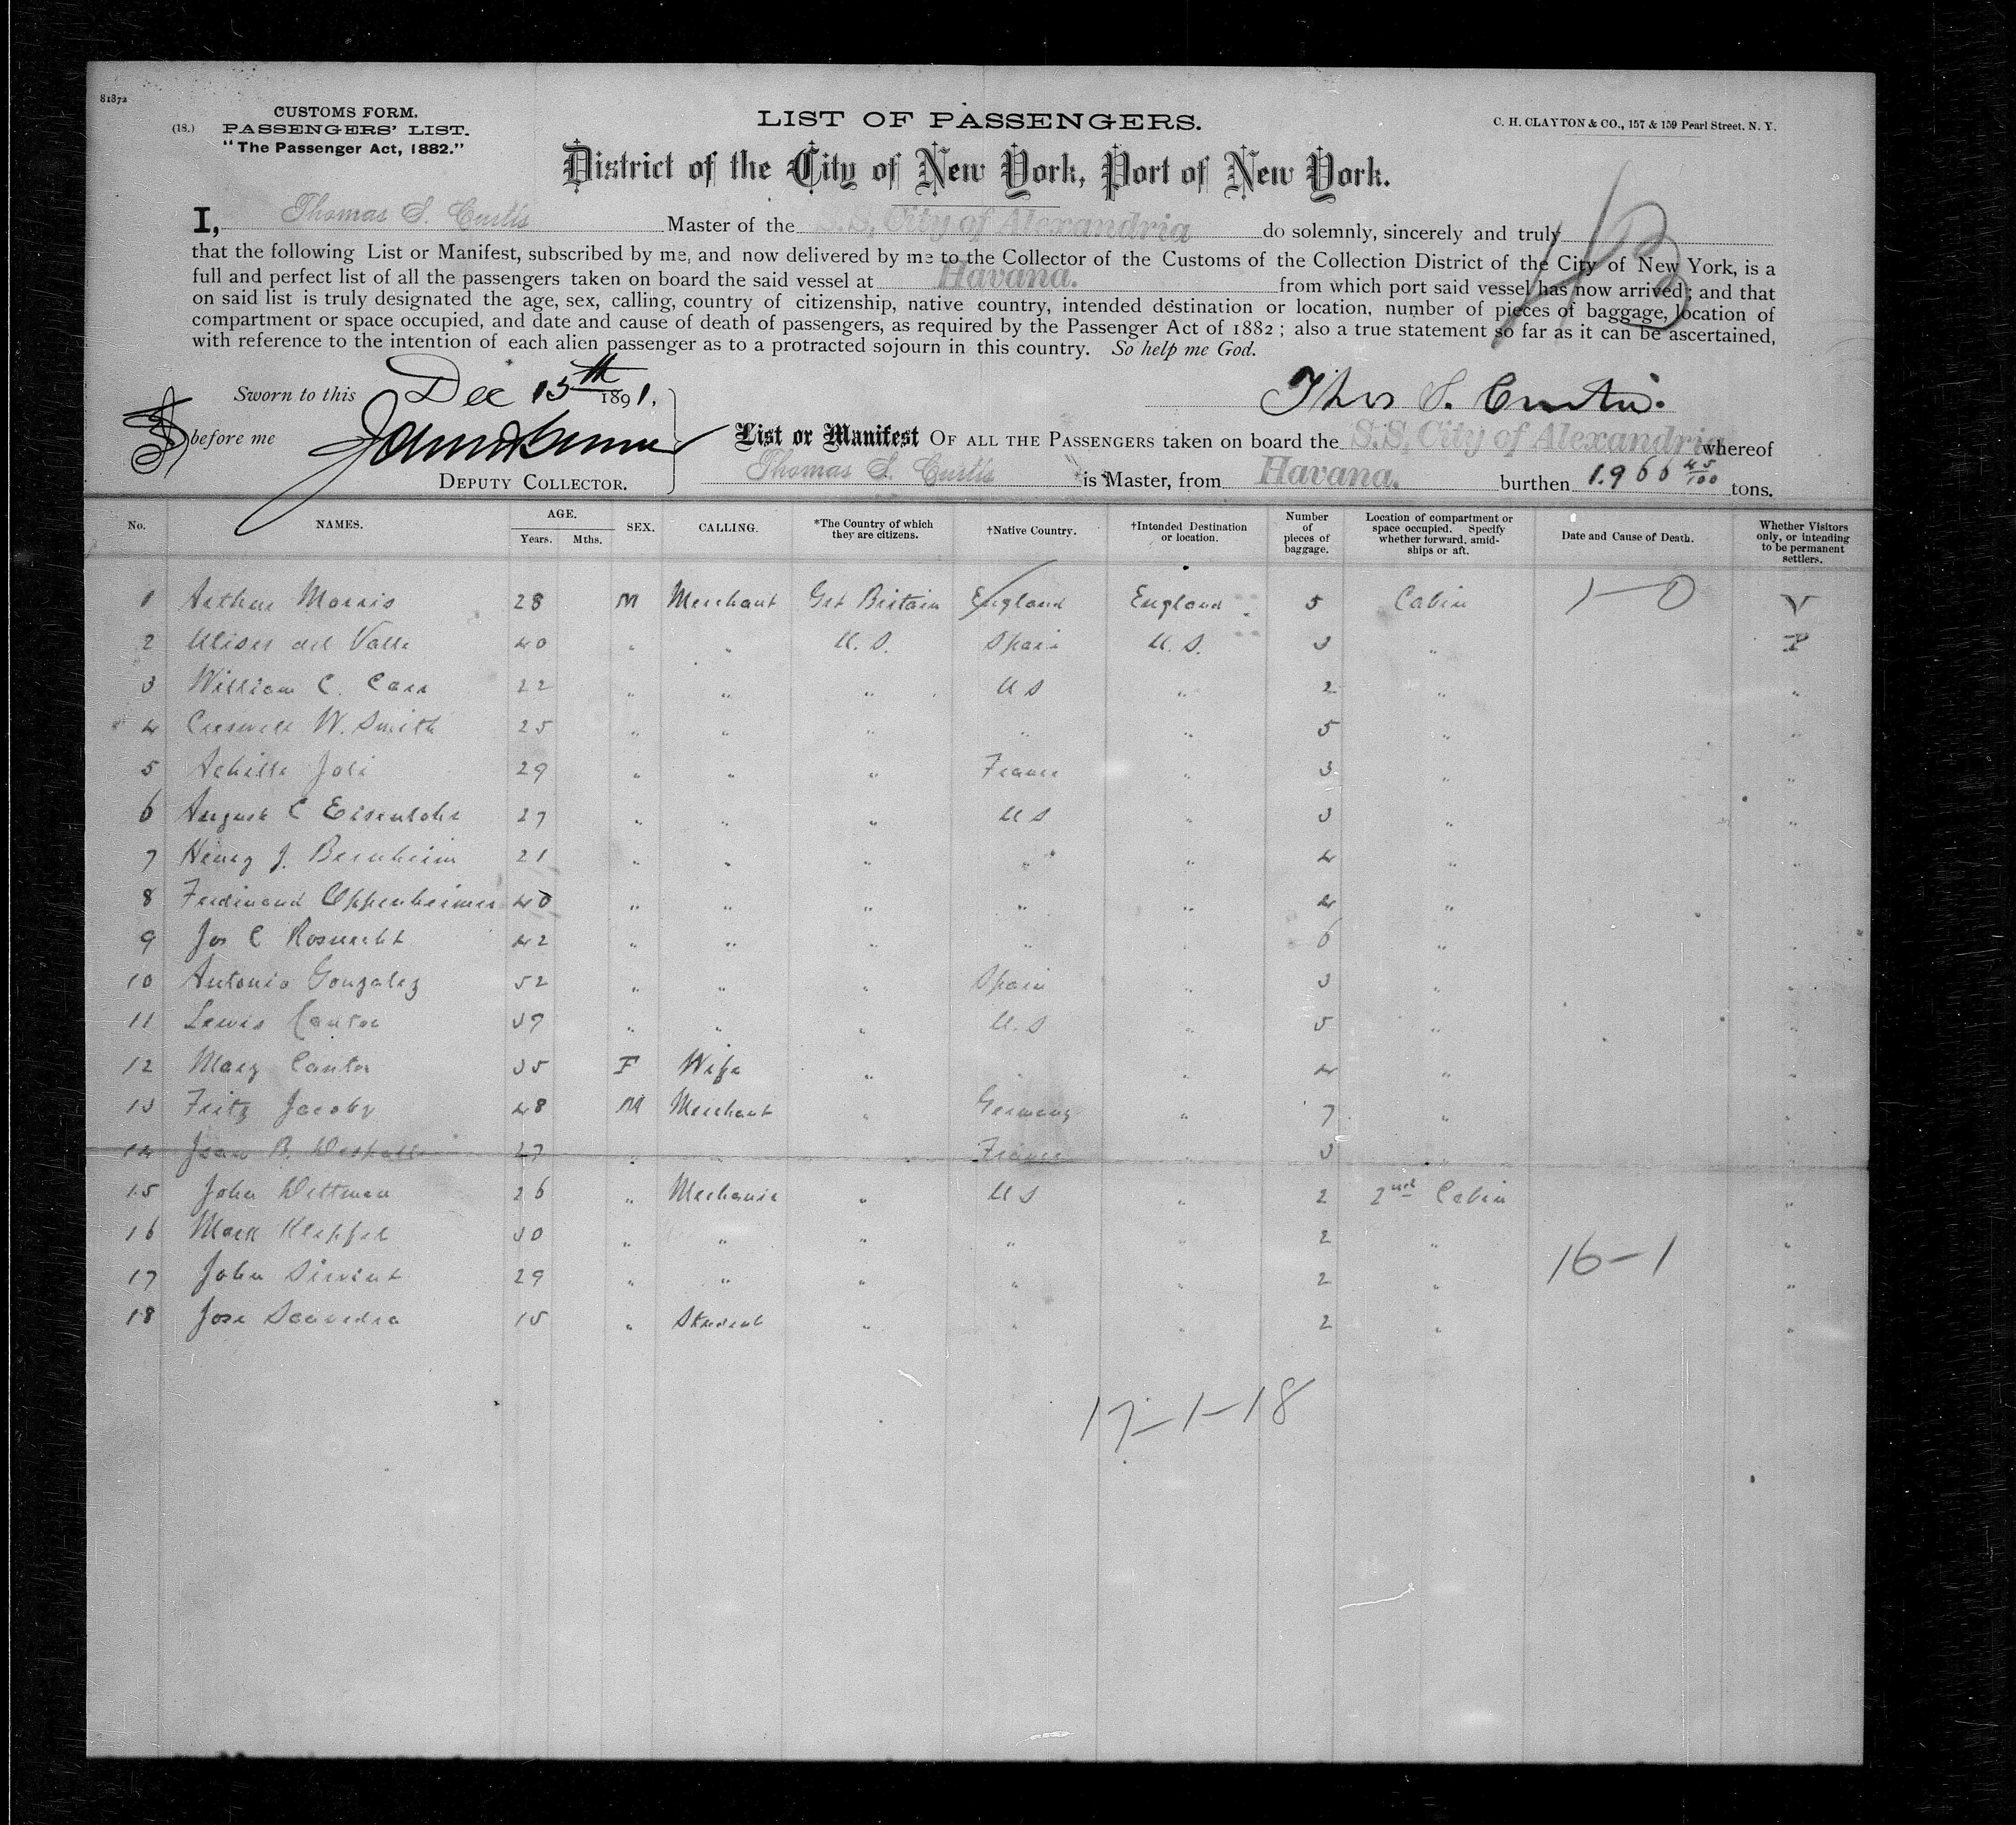 81872
(18.)
CUSTOMS FORM.
PASSENGERS' LIST.
"The Passenger Act, 1882."
LIST OF PASSENGERS.
C. H. CLAYTON & CO., 157 & 159 Pearl Street, N. Y.
District of the City of New York, Port of New York.
I, Thomas S. Curtis Master of the S.S. City of Alexandria do solemnly, sincerely and truly
that the following List or Manifest, subscribed by me, and now delivered by me to the Collector of the Customs of the Collection District of the City of New York, is a
full and perfect list of all the passengers taken on board the said vessel at Havana. from which port said vessel has now arrived; and that
on said list is truly designated the age, sex, calling, country of citizenship, native country, intended destination or location, number of pieces of baggage, location of
compartment or space occupied, and date and cause of death of passengers, as required by the Passenger Act of 1882; also a true statement so far as it can be ascertained,
with reference to the intention of each alien passenger as to a protracted sojourn in this country. So help me God.
Sworn to this Dec 15th 1891,
Thos S. Curtis.
before me
DEPUTY COLLECTOR.
List or Manifest OF ALL THE PASSENGERS taken on board the S.S. City of Alexandria whereof
Thomas S. Curtis is Master, from Havana. burthen 1.966 45/100 tons.
No. NAMES. AGE. Years. Mths. SEX. CALLING. *The Country of which they are citizens. †Native Country. †Intended Destination or location. Number of pieces of baggage. Location of compartment or space occupied. Specify whether forward, amidships or aft. Date and Cause of Death. Whether Visitors only, or intending to be permanent settlers.
1 Arthur Morris 28 M Merchant Grt Britain England England 5 Cabin 1-0 V
2 Ulises del Valle 40 " " U. S. Spain U. S. 3 " P
3 William C. Carr 22 " " " U S " 2 " "
4 Creswell W. Smith 25 " " " " " 5 " "
5 Achille Joli 29 " " " France " 3 " "
6 August C Eisenlohr 27 " " " U S " 3 " "
7 Henry J. Bernheim 21 " " " " " 4 " "
8 Ferdinand Oppenheimer 40 " " " " " 4 "
9 Jos C 42 " " " " " 6 " "
10 Antonio Gonzalez 52 " " " Spain " 3 " "
11 Lewis Cantor 37 " " " U. S " 5 " "
12 Mary Cantor 35 F Wife " " " 4 " "
13 Fritz Jacoby 48 M Merchant " Germany " 7 " "
14 Jean B. 27 " " " France " 3 " "
15 John Wettman 26 " Mechanic " U S " 2 2nd Cabin "
16 Mark Klepfel 30 " " " " " 2 " "
17 John 29 " " " " " 2 " 16-1 "
18 Jose Saavedra 15 " Student " " " 2 " "
17-1-18